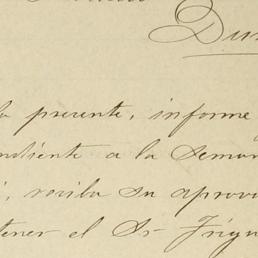 Du
la presente, informe
ndiente a la Seman
i, reciba su aprova
tener el Sr Trigu